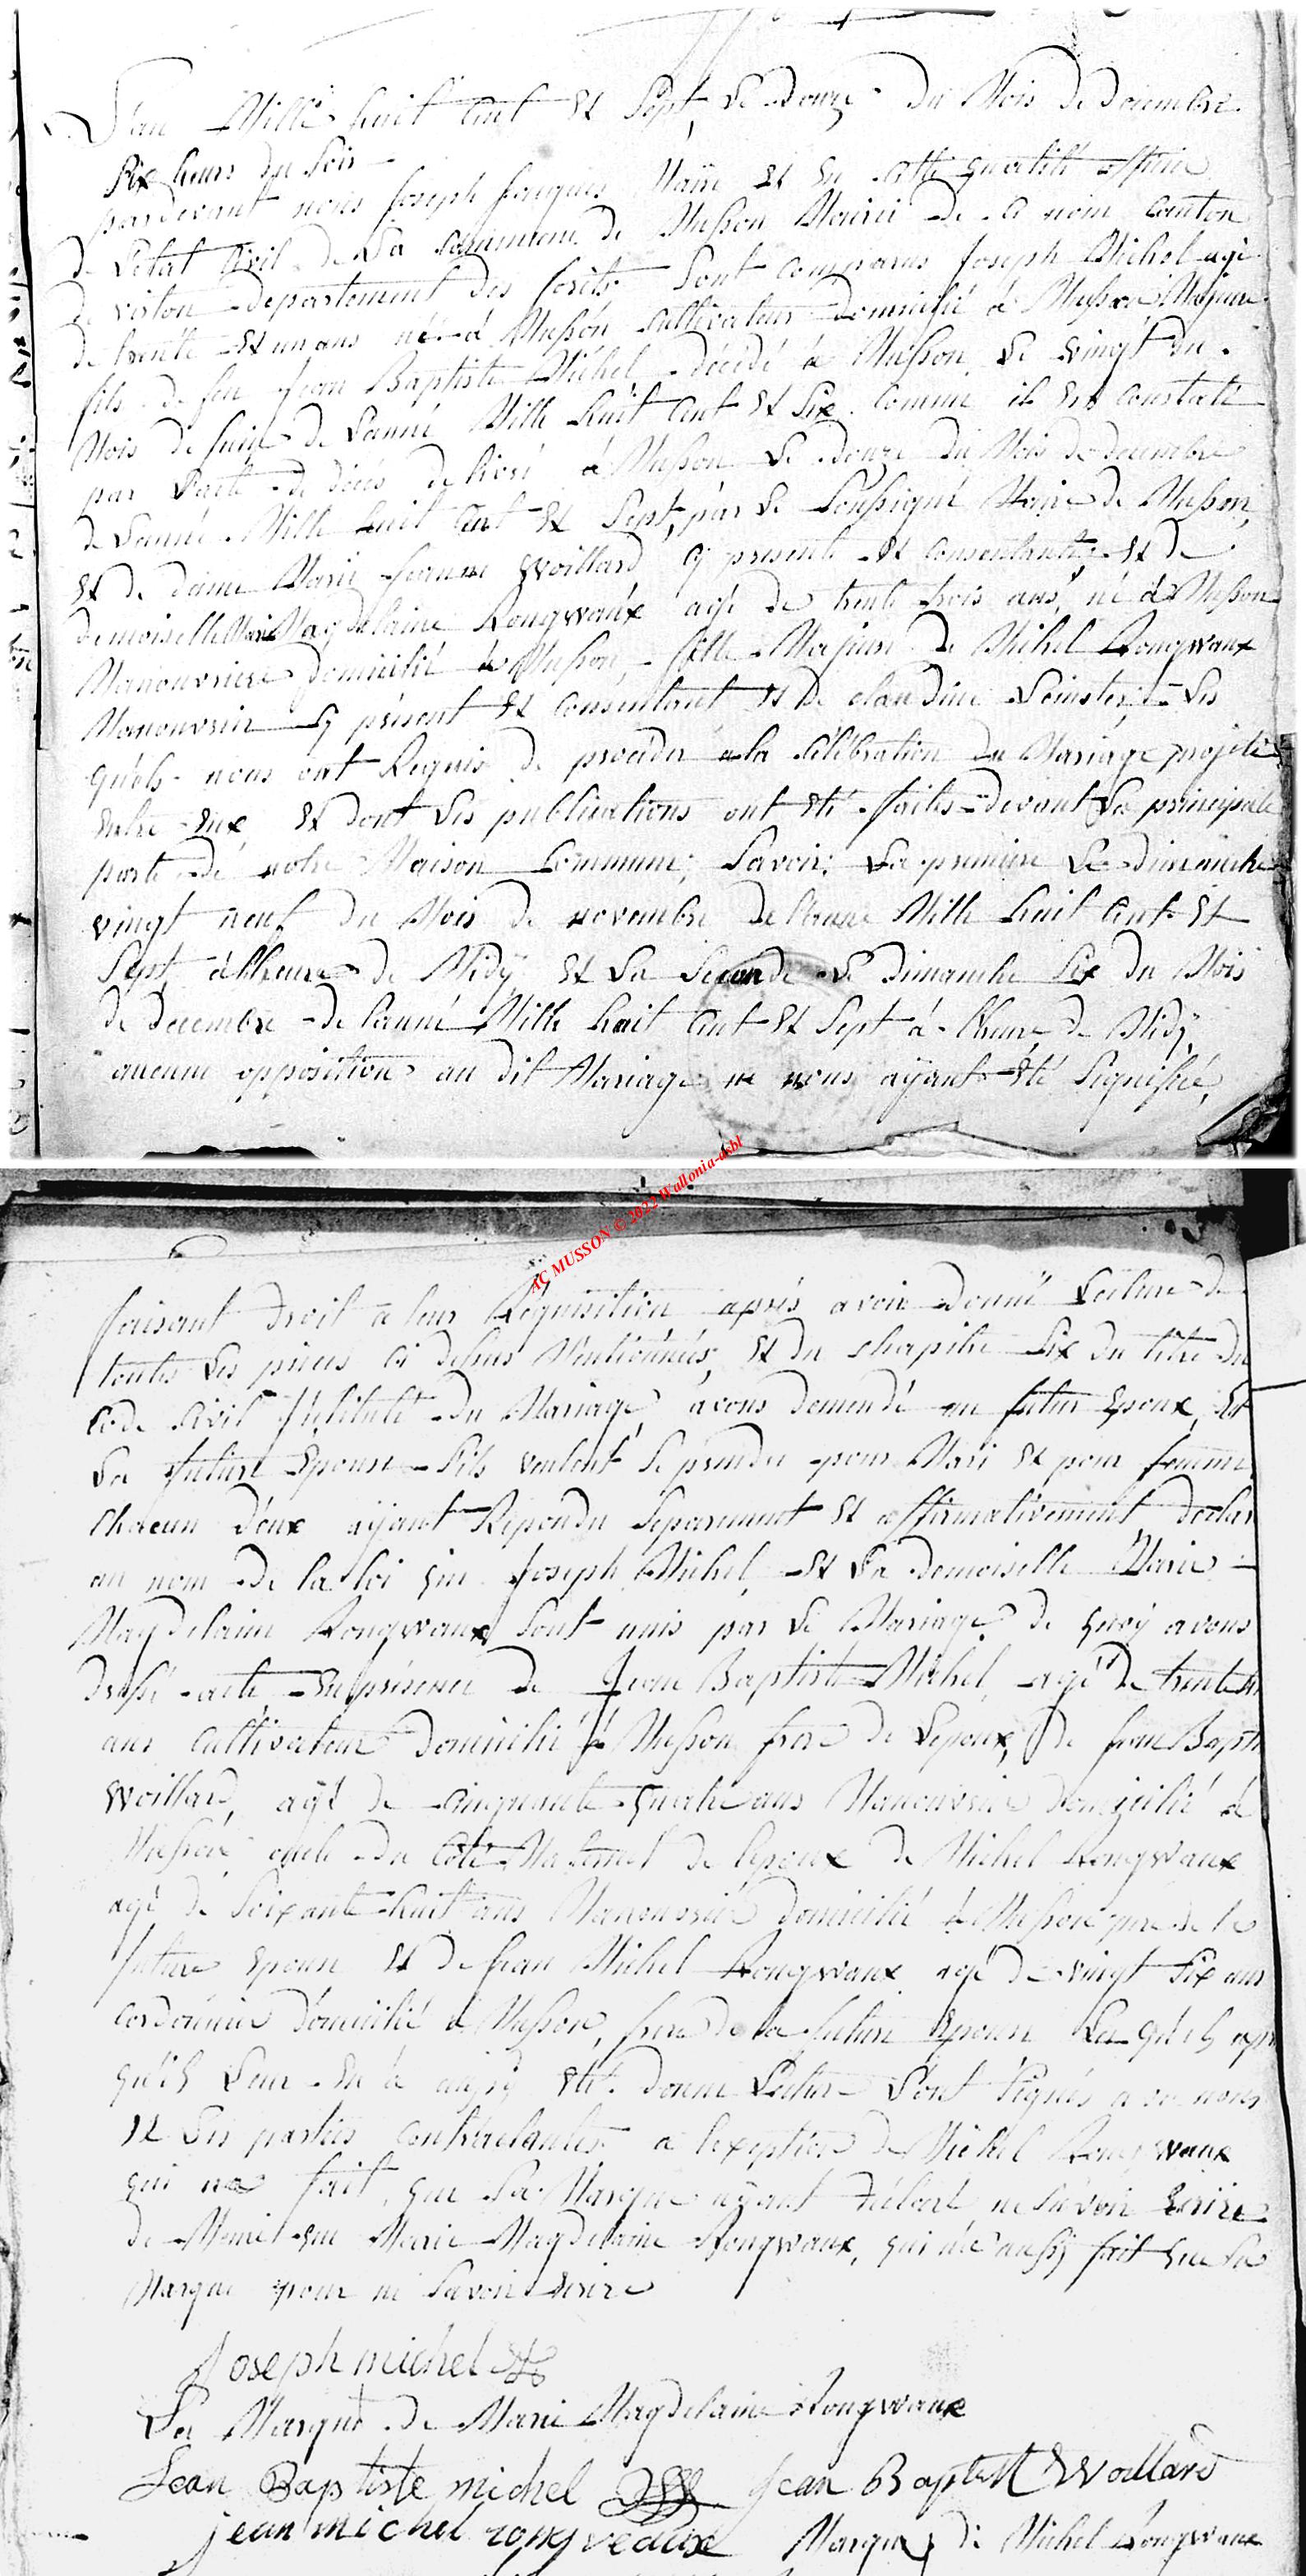 L'an Mille huit Cent Et Sept, Le Douze du Mois De Decembre
Six heurs du Soir
pardevant nous Joseph Maire Et En Cette qualité officier
de Letat Civil De La Commune de Musson Mairie De Ce nom Canton
de virton Departement des forets Sont Comparus Joseph Michel agé
de trente Et un ans né à Musson Cultivateur Domicilié à Musson, Majeure
fils de feu Jean Baptiste Michel decédé à Musson, Le vingt du
Mois de Juin de L'anné Mille huit Cent Et Six Comme il Est Constaté
par L'acte de décès delivré à Musson Le Douze du Mois de decembre
de L'anné Mille huit Cent Et Sept, par Le Soussigné Maire de Musson,
Et de dame Marie Jeanne Woillard cy presente Et Consentante, Et de
demoiselle Marie Magdelaine Rongwaux agé de trente trois ans, né à Musson
Manouvriere Domicilié à Musson, fille Majeure de Michel Rongwaux
Manouvrier Cy présent Et Consentant Et De claudine Les
quels nous ont Requis De proceder a la Célébration du Mariage projeté
Entre Eux, Et dont Les publications ont Eté faites devant La principale
porte de notre Maison Commune, Savoir, La premiere Le dimanche
vingt neuf du Mois de novembre De l'anné Mille huit Cent Et
Sept, à L'heure de Midÿ Et La Seconde Le Dimanche Six du Mois
de decembre de L'anné Mille huit Cent Et Sept à L'heure de Midÿ,
aucune opposition au dit Mariage ne nous aÿant Eté Signifiée,
AC MUSSON © 2022 Wallonia-asbl
faisant Droit a leur Réquisition après avoir Donné Lecture De
toutes Les pieces Ci dessus Mentionnées, Et du chapitre Six Du titre Du
Code Civil Intitulé du Mariage, avons demendé au futur Epoux, Et
La future Epouse S'ils veulent Se prendre pour Mari Et pour femme,
Chacun D'eux aÿant Repondu Separement Et affirmativement Declar
au nom De la loi que Joseph Michel, Et La Demoiselle Marie
Magdelaine Rongwaux Sont unis par Le Mariage, de quoy avons
Dressé acte En présence De Jean Baptiste Michel, agé de trente
ans Cultivateur Domicilié à Musson frere de L'epoux, De Jean Bapti
Woillard, agé de Cinquante quatre ans Manouvrier Domicilié à
Musson, oncle du Côté Maternel de l'epoux de Michel Rongwaux
agé de Soixante huit ans Manouvrier domicilié à Musson pere de la
future Epouse Et de Jean Michel Rongwaux agé de vingt Six ans
Cordonnier domicilié à Musson, frere De la future Epouse Les quels
qu'il Leur En à aussy Eté Donné Lecture L'ont Signés avec nous
Et Les parties Contractantes a l'exception de Michel Rongwaux
qui n'a fait que Sa Marque aÿant Déclaré ne Savoir Ecrire
de Meme que Marie Magdelaine Rongwaux, qui n'a aussy fait que Sa
Marque pour ne Savoir Ecrire
Joseph michel
La Marque de Marie Magdelaine Rongwaux
Jean Baptiste michel Jean Baptiste Woillard
jean michel rongveaux Marque de Michel Rongwaux